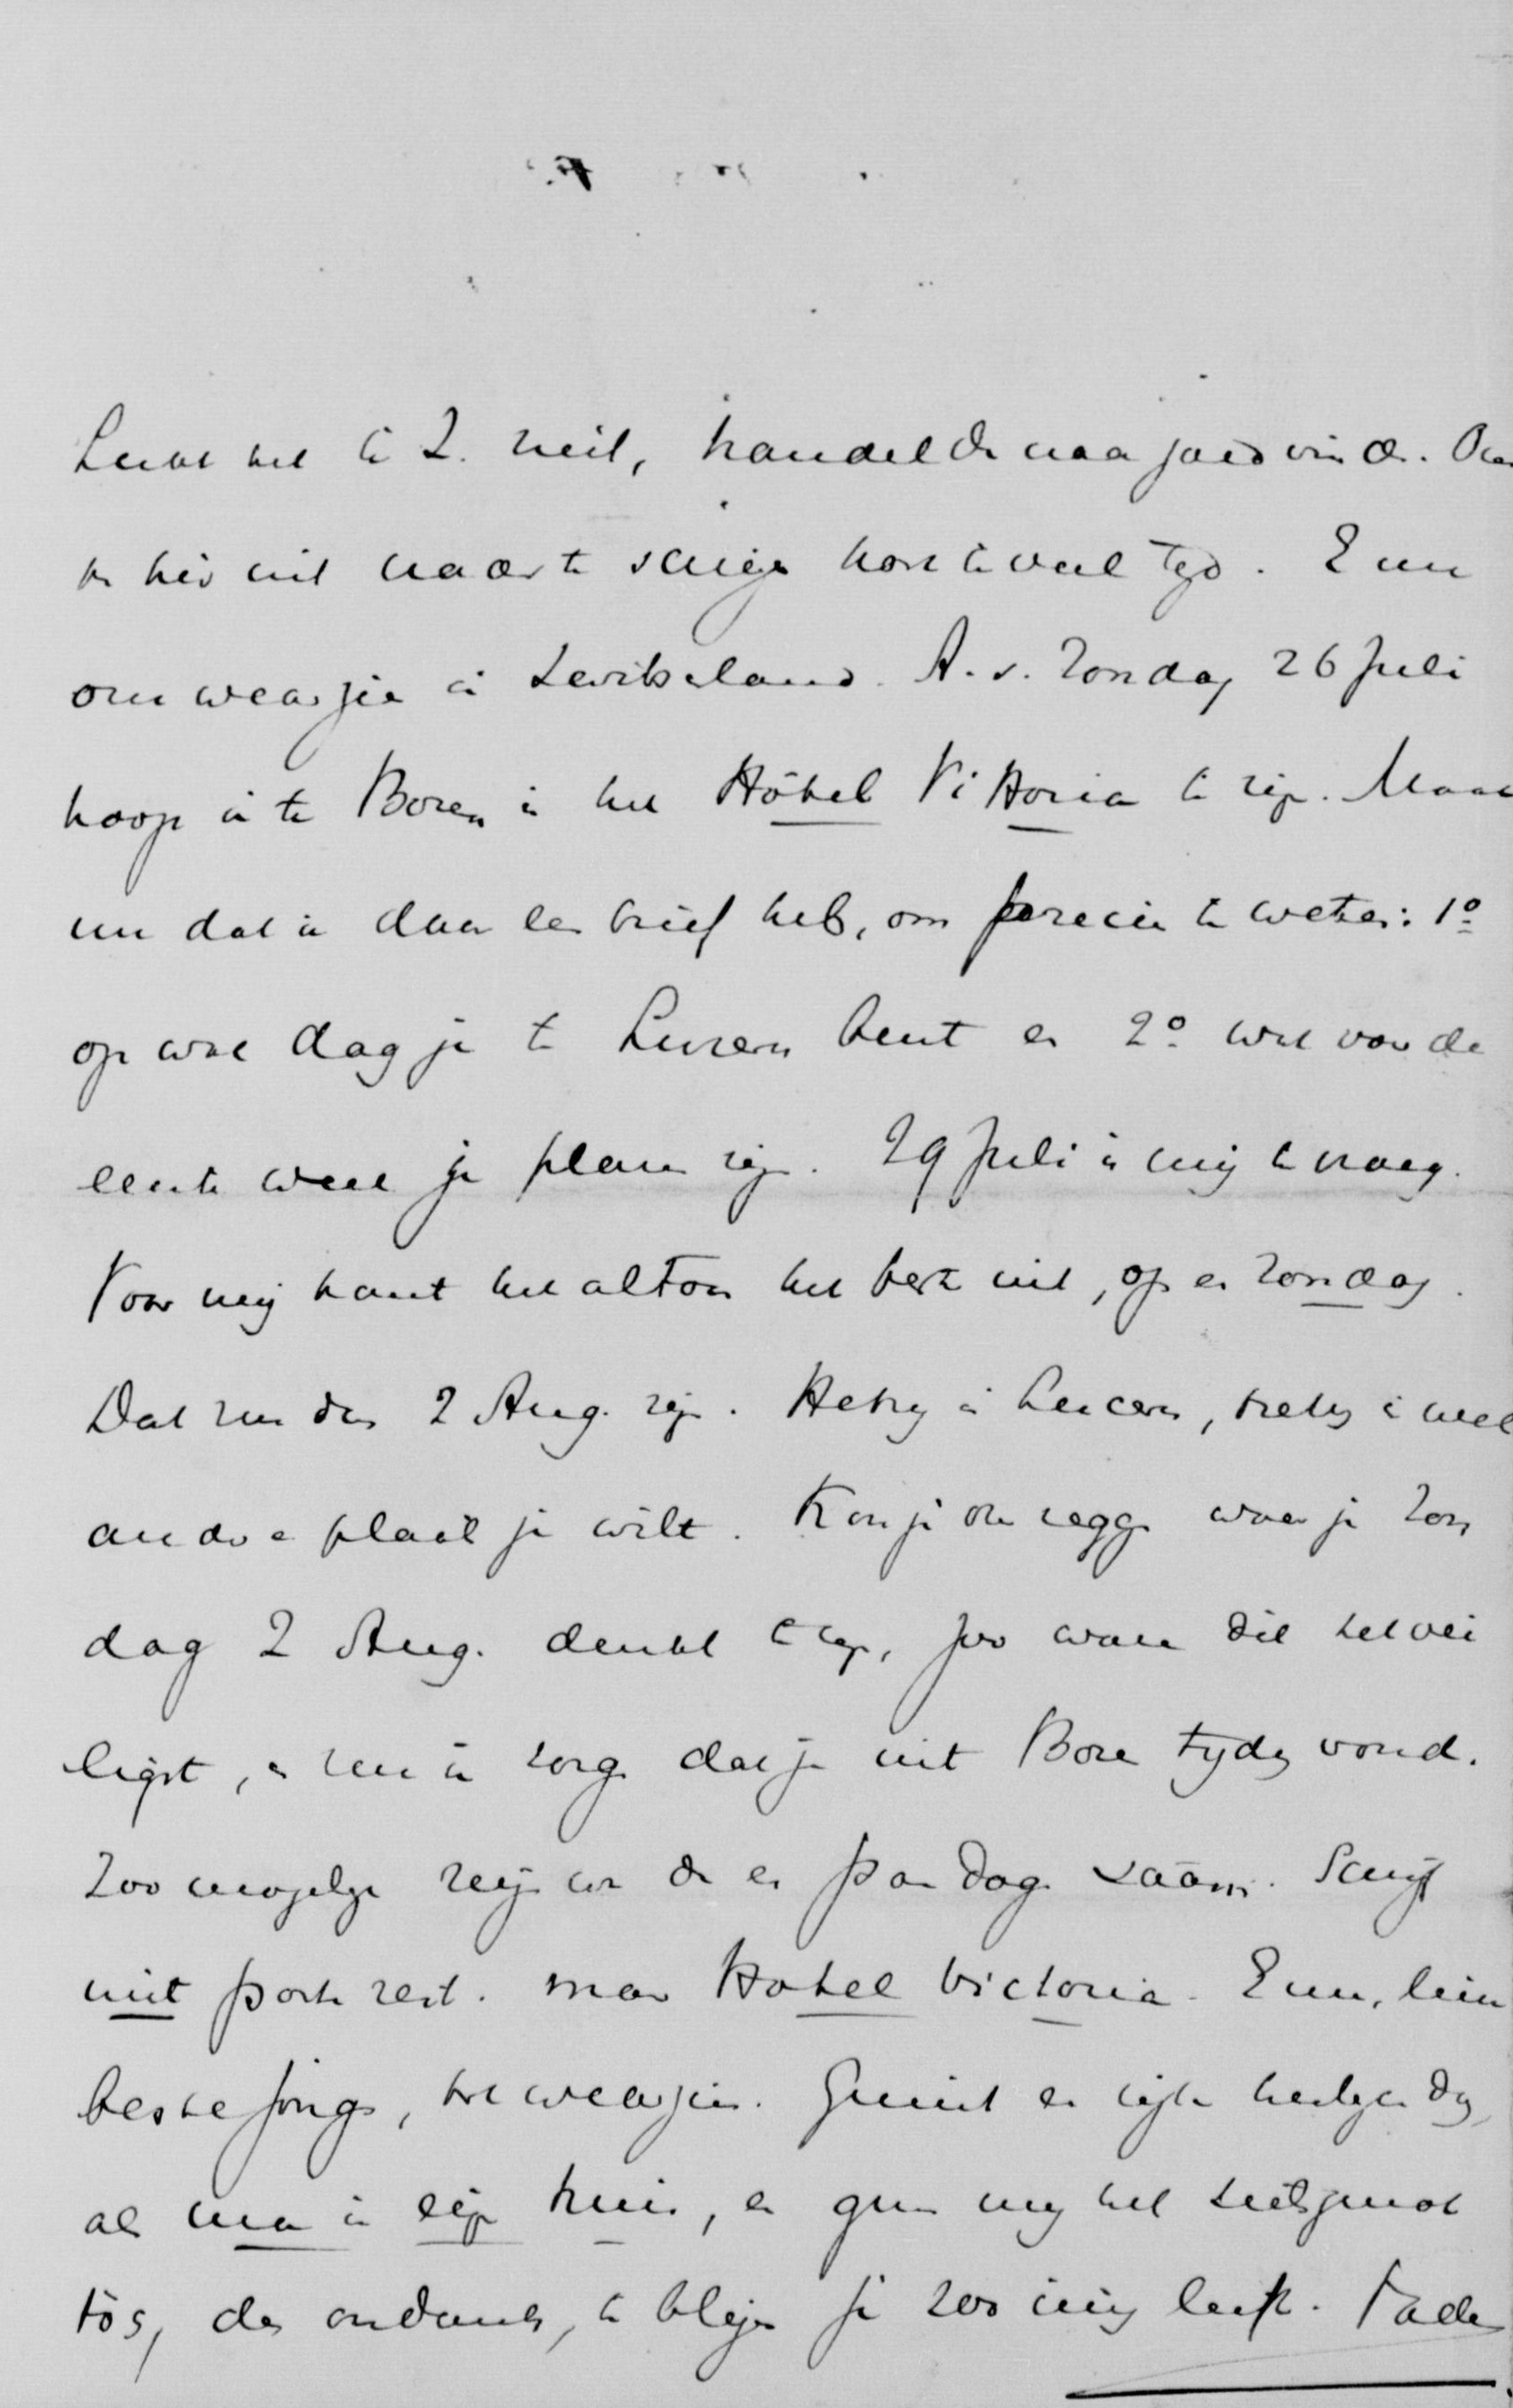 Lukt het te L. niet, handel dan naar goedvinden. Over
en hier uit nader te schrijven kost te veel tijd. En nu
om weerzien in Zwitserland. A.s. Zondag 26 Juli
hoop ik te Bozen in het Hôtel Vittoria te zijn. Maak
nu dat ik daar een brief heb, om precies te weten: 1o
op wat dag je te Luzern bent en 2o wat voor de
eerste week je plannen zijn. 29 Juli is mij te vroeg.
Voor mij komt het altoos het best uit, op een Zondag.
Dat zou dan 2 Aug. zijn. Hetzij in Lucern, hetzij in welke
andere plaats je wilt. Kon je me zeggen waar je Zon
dag 2 Aug. denkt te zijn, zoo ware dit het vei
ligst, en zou ik zorgen dat je uit Bozen tijdig
Zoo mogelijk reizen we dan een paar dagen saam. Schrijf
niet poste rest. maar Hotel Victoria. En nu, lieve
beste jongen, tot weerziens. Geniet en rijke heerlijke dag
als in eigen huis, en gun mij het zielsgenot
tos, des ondanks, te blijven je zoo innig liefh. Vader